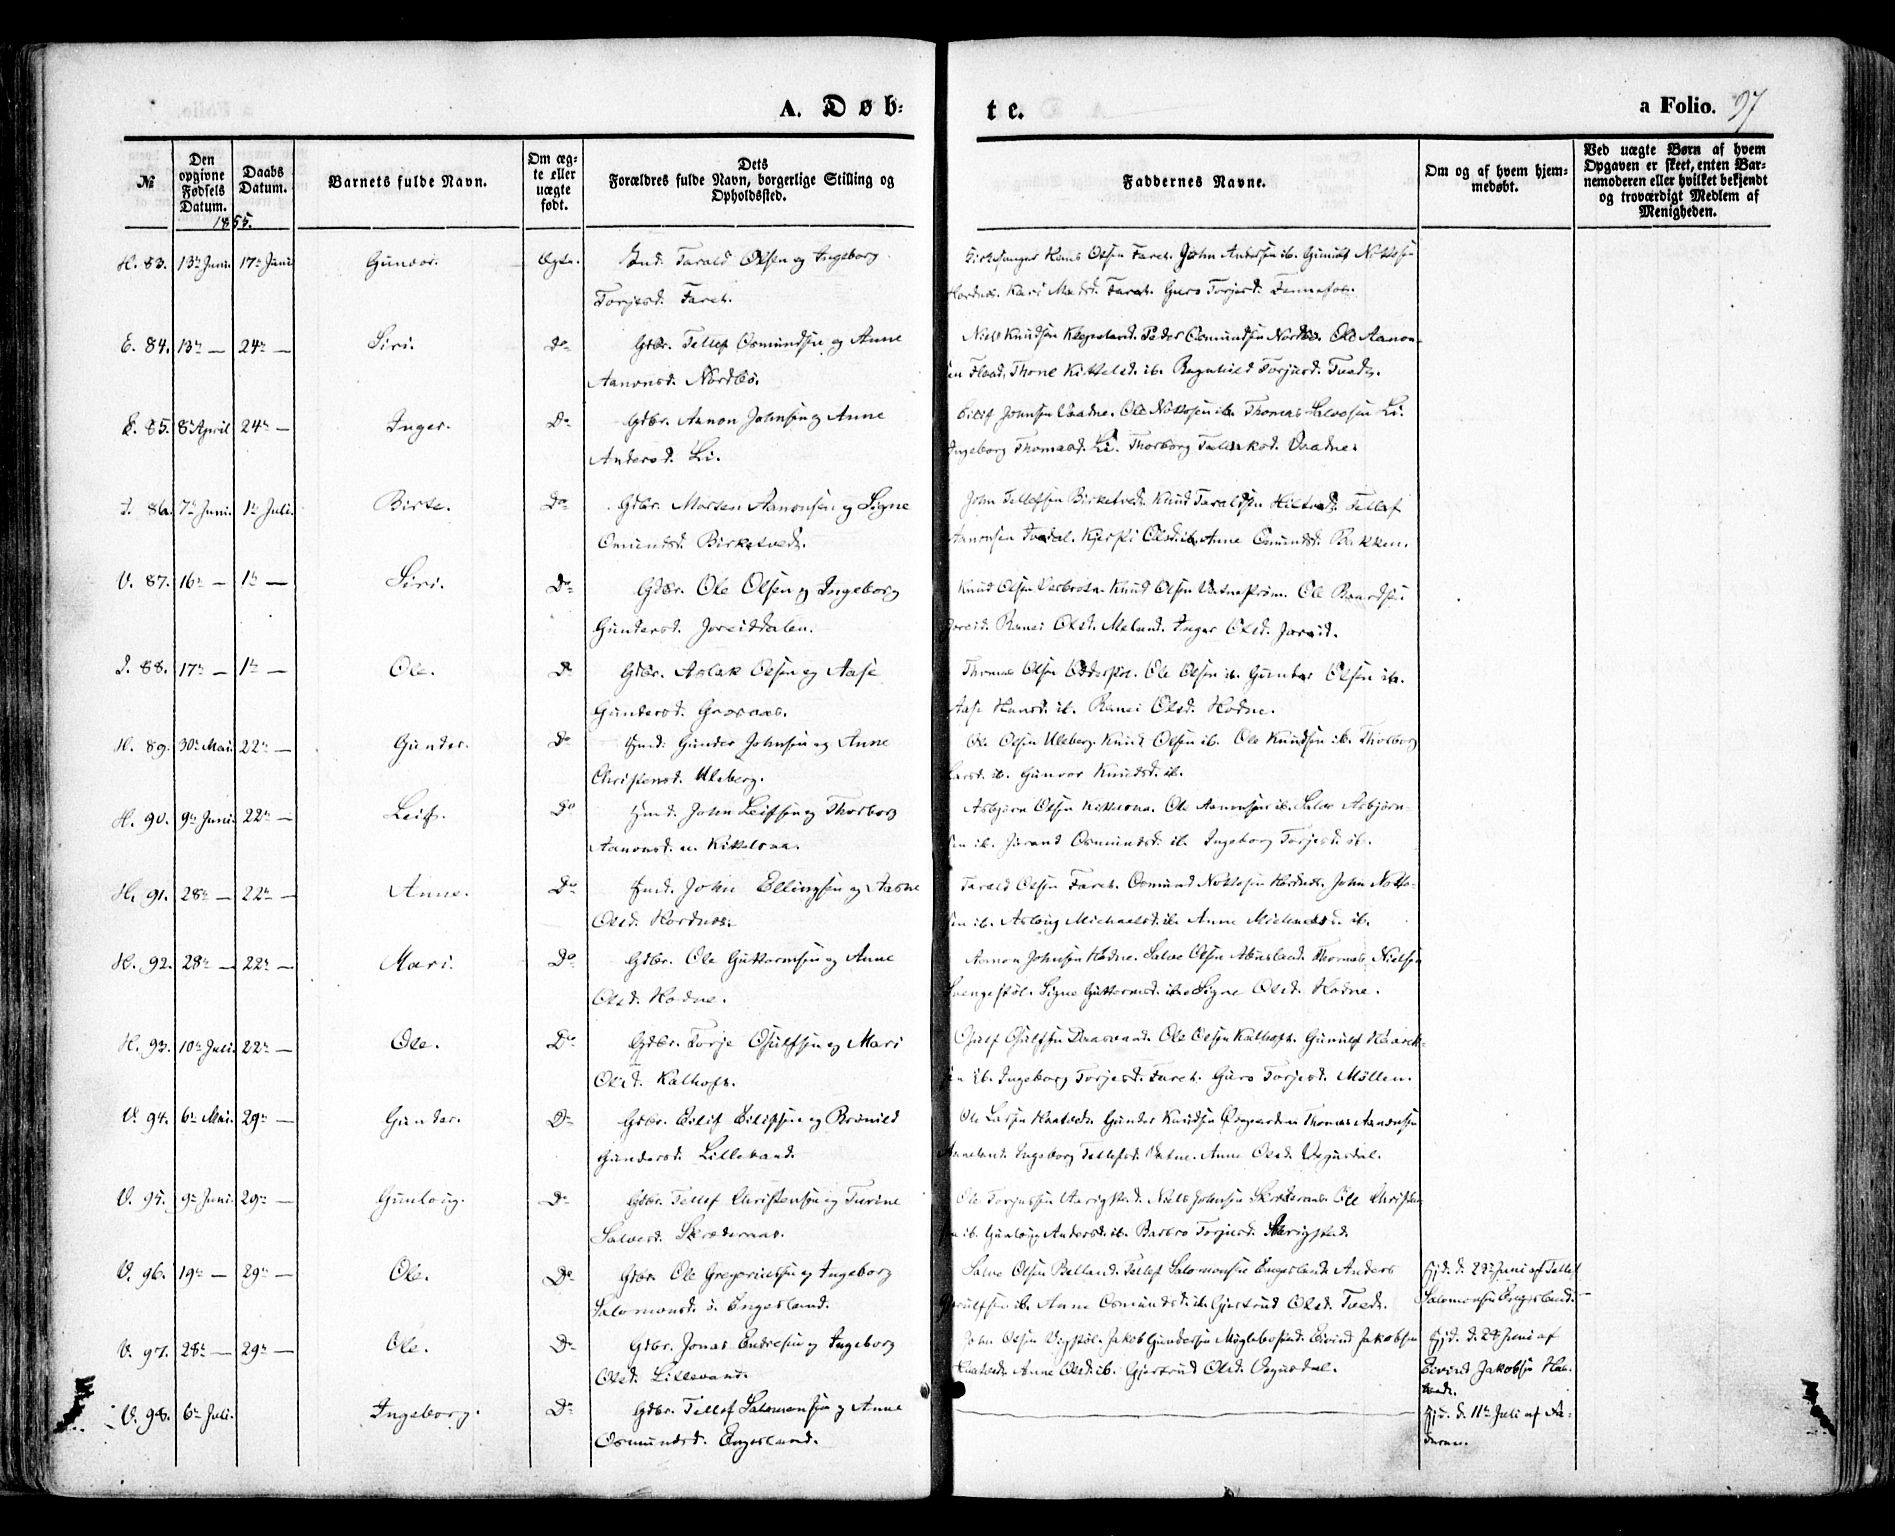 A. Døb-
te.
a Folio. 97
№
Den opgivne Fødsels Datum.
Daabs Datum.
Barnets fulde Navn.
Om ægte eller uægte født.
Dets Forældres fulde Navn, borgerlige Stilling og Opholdssted.
Faddernes Navne.
Om og af hvem hjemmedøbt.
Ved uægte Børn af hvem Opgaven er skeet, enten Barnemoderen eller hvilket bekjendt og troværdigt Medlem af Menigheden.
1855.
H. 83. 13de Juni. 17de Juni Gunvor. Ægte. Ind. Tarald Olsen og Ingeborg
Torjesd. Faret.
Kirkesanger Hans Olsen Faret. John Andersen ib. Gunulf Nottosen
Hordnes. Kari Madsd. Faret. Guro Torjesd. Fennefos.
E. 84. 13de — 24de — Siri. Do Gdbr. Tellef Osmundsen og Anne
Aanonsd. Nordbø.
Niels Knudsen Klepsland. Peder Osmundsen Nordbø. Ole Aanon-
sen Flaa. Thone Kittelsd. ib. Ragnhild Torjusd. Tveit.
E. 85. 8de April 24de — Inger. Do Gdbr. Aanon Johnsen og Anne
Andersd. Li.
Eilif Johnsen Vaadne. Ole Nottosen ib. Thomas Salvesen Li.
Ingeborg Thomasd. Li. Thorborg Vaadne.
I. 86. 7de Juni. 1ste Juli. Birte. Do Gdbr. Morten Aanonsen og Signe
Omundsd. Birketvedt.
John Tellefsen Birketvedt. Knud Taraldsen Hiltvedt. Tellef
Aanonsen Tvedal. Kjersti Olsd. ib. Anne Omundsd. Bakken.
V. 87. 16de — 1ste — Siri. Do Gdbr. Ole Olsen og Ingeborg
Gundersd. Joreiddalen.
Knud Olsen Knud Olsen Vatnestrøm. Ole Baardsen
Joreid. Ranei Olsd. Meland. Inger Olsd. Joreid.
I. 88. 17de — 1ste — Ole. Do Gdbr. Aslak Olsen og Aase
Gundersd. Græsaas.
Thomas Olsen Odderstøl. Ole Olsen ib. Gunder Olsen ib.
Aase Hansd. ib. Ranei Olsd. Hodne.
H. 89. 30te Mai. 22de — Gunder. Do Hmd. Gunder Johnsen og Anne
Christensd. Uleberg.
Ole Olsen Uleberg. Knud Olsen ib. Ole Knudsen ib. Thorborg
Larsd. ib. Gunvor Knudsd. ib.
H. 90. 9de Juni. 22de — Leif. Do Hmd. John Leifsen og Thorborg
Aanonsd. u. Kittelsaa.
Asbjørn Olsen Kittelsaa. Ole Aanonsen ib. Salve Asbjørn-
sen ib. Jorand Osmundsd. ib. Ingeborg Torjesd. ib.
H. 91. 28de — 22de — Anne. Do Hmd. John Ellingsen og Aasne
Olsd. Hordnes.
Tarald Olsen Faret. Osmund Nottosen Hordnes. John Notto-
sen ib. Aslaug Michaelsd. ib. Anne Michaelsd. ib.
H. 92. 28de — 22de — Mari. Do Gdbr. Ole Guttormsen og Anne
Olsd. Hodne.
Aanon Johnsen Hodne. Salve Olsen Abusland. Thomas Nielsen
Svengestøl. Signe Guttormsd. ib. Signe Olsd. Hodne.
H. 93. 10de Juli. 22de — Ole. Do Gdbr. Torje Osulfsen og Mari
Olsd. Kalhoft.
Osulf Osulfsen Daasvand. Ole Olsen Kalhoft. Gunulf
sen ib. Ingeborg Torjesd. Faret. Guro Torjesd. Møllen.
V. 94. 6te Mai. 29de — Gunder. Do Gdbr. Eilif Eilifsen og Brønild
Gundersd. Lillevand.
Ole Larsen Haatvedt. Gunder Knudsen Thomas Aanensen
Ingeborg Tellefsd. Vatne. Anne Olsd. Vegusdal.
V. 95. 9de Juni. 29de — Gunloug. Do Gdbr. Tellef Christensen og Turine
Salvesd. Skrøderaas.
Ole Torjussen Aarigsted. Niels Johnsen Skrøderaas. Ole Christen-
sen ib. Gunloug Andersd. ib. Barbro Torjusd. Aarigsted.
V. 96. 19de — 29de — Ole. Do Gdbr. Ole Gregoriussen og Ingeborg
Salomonsd. s. Engesland.
Salve Olsen Belland. Tellef Salomonsen Engesland. Anders
ib. Anne Osmundsd. ib. Gjertrud Olsd. Tveit.
Hjd. d. 23de Juni af Tellef
Salomonsen Engesland.
V. 97. 28de — 29de — Ole. Do Gdbr. Jonas Endresen og Ingeborg
Olsd. Lillevand.
John Olsen Vigstøl. Jakob Gundersen Møglebostad. Eivind Jakobsen
Haatvedt. Anne Olsd. ib. Gjertrud Olsd. Vegusdal.
Hjd. d. 28 Juni af
Eivind Jakobsen Haa-
tvedt.
V. 98. 6te Juli. Ingeborg. Do Gdbr. Tellef Salomonsen og Anne
Osmundsd. Engesland.
Hjd. d. 11te Juli af Fa-
deren.